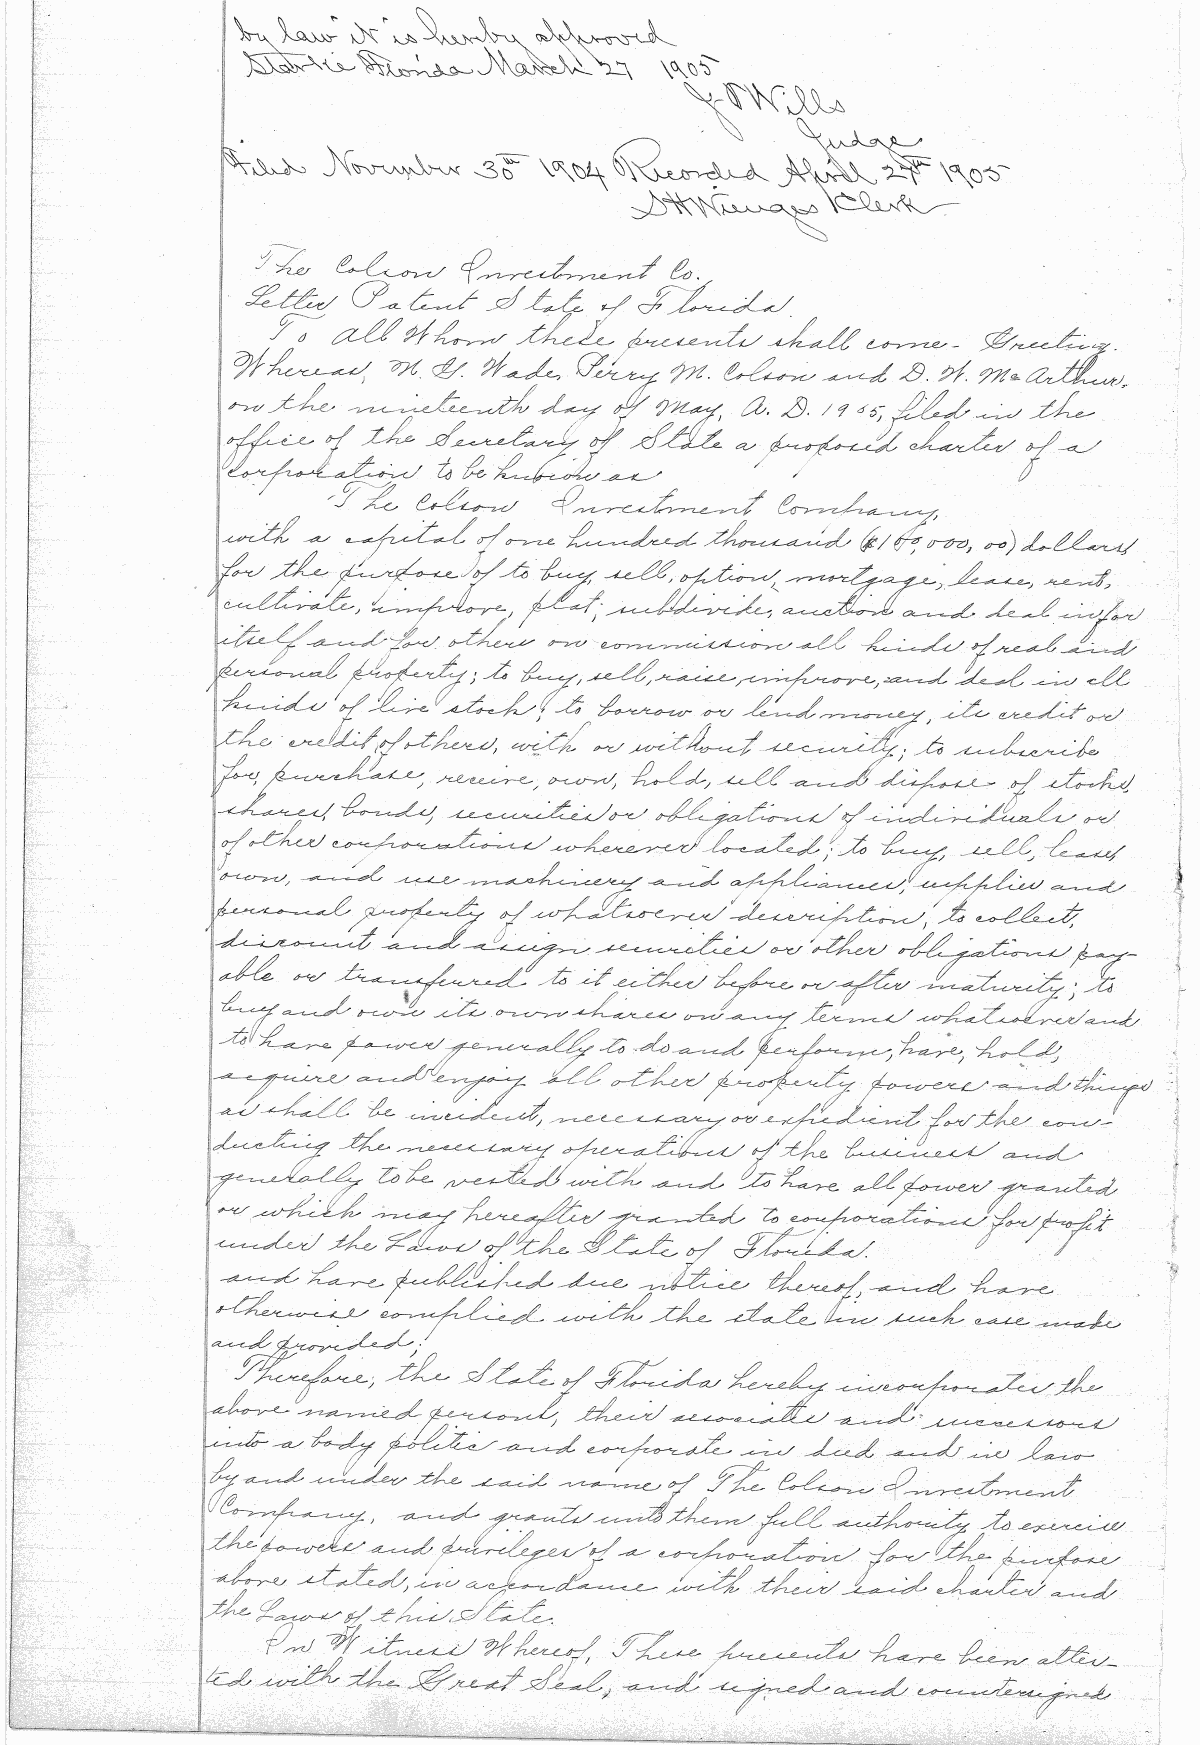 by law it is hereby approved
Starke Florida March 27 1905
J. P. Wills
Judge
Filed November 30th 1904 Recorded April 27th 1905
S H Wienges Clerk
The Colson Investment Co.
Letter Patent State of Florida.
To all Whom these presents shall come - Greeting.
Whereas, N. G. Wade, Perry M. Colson and D. W. McArthur,
on the nineteenth day of May, A. D. 1905, filed in the
office of the Secretary of State a proposed charter of a
corporation to be known as
The Colson Investment Company,
with a capital of one hundred thousand ($100,000,00) dollars
for the purpose of to buy, sell, option, mortgage, lease, rent,
cultivate, improve, plat, subdivide, auction and deal in for
itself and for others on commission all kinds of real and
personal property; to buy, sell, raise, improve, and deal in all
kinds of live stock; to borrow or lend money, its credit or
the credit of others, with or without security; to subscribe
for, purchase, receive, own, hold, sell and dispose of stocks,
shares, bonds, securities or obligations of individuals or
of other corporations wherever located; to buy, sell, lease,
own, and use machinery and appliances, supplies and
personal property of whatsoever description, to collect,
discount and assign securities or other obligations pay-
able or transferred to it either before or after maturity; to
buy and own its own shares on any terms whatsoever and
to have power generally to do and perform, have, hold,
acquire and enjoy all other property powers and things
as shall be incident, necessary or expedient for the con-
ducting the necessary operations of the business and
generally to be vested with and to have all power granted
or which may hereafter granted to corporations for profit
under the Laws of the State of Florida.
and have published due notice thereof, and have
otherwise complied with the state in such case made
and provided;
Therefore, the State of Florida hereby incorporates the
above named persons, their associates and successors
into a body politic and corporate in deed and in law
by and under the said name of The Colson Investment
Company, and grants unto them full authority to exercise
the powers and privileges of a corporation for the purpose
above stated, in accordance with their said charter and
the Laws of this State.
In Witness Whereof, These presents have been attes-
ted with the Great Seal, and signed and countersigned